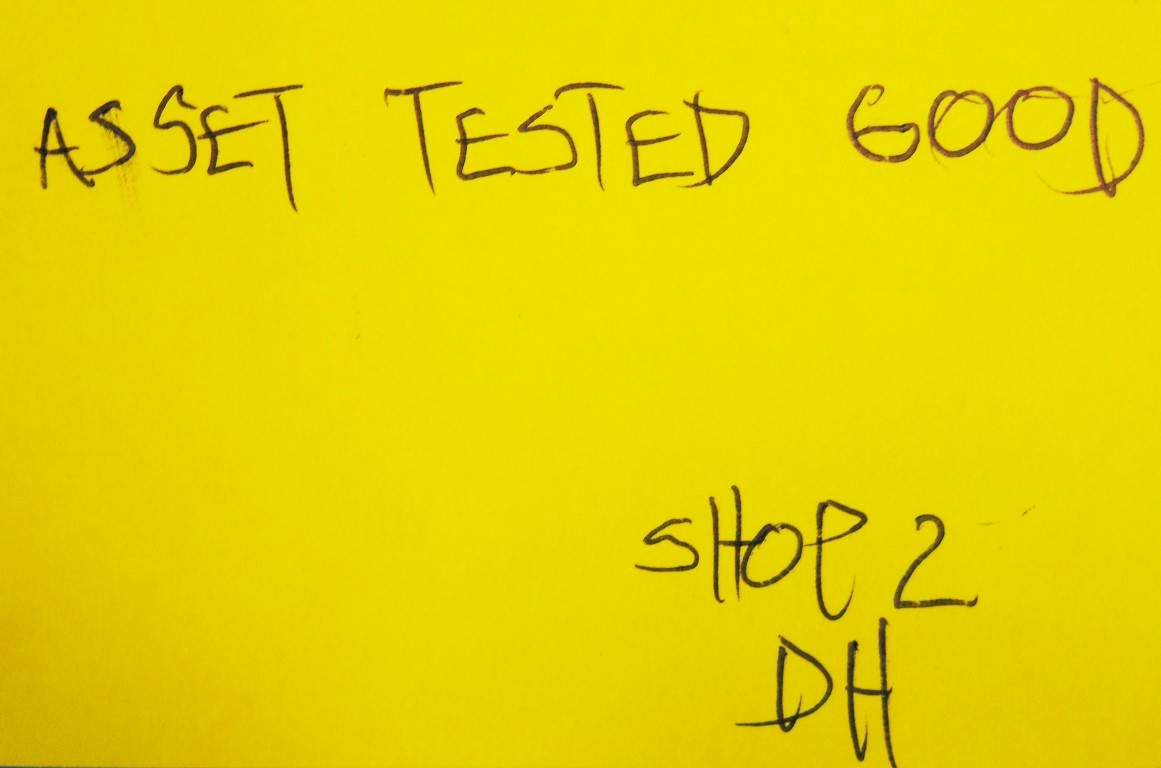 ASSET TESTED GOOD
SHOP 2
DH